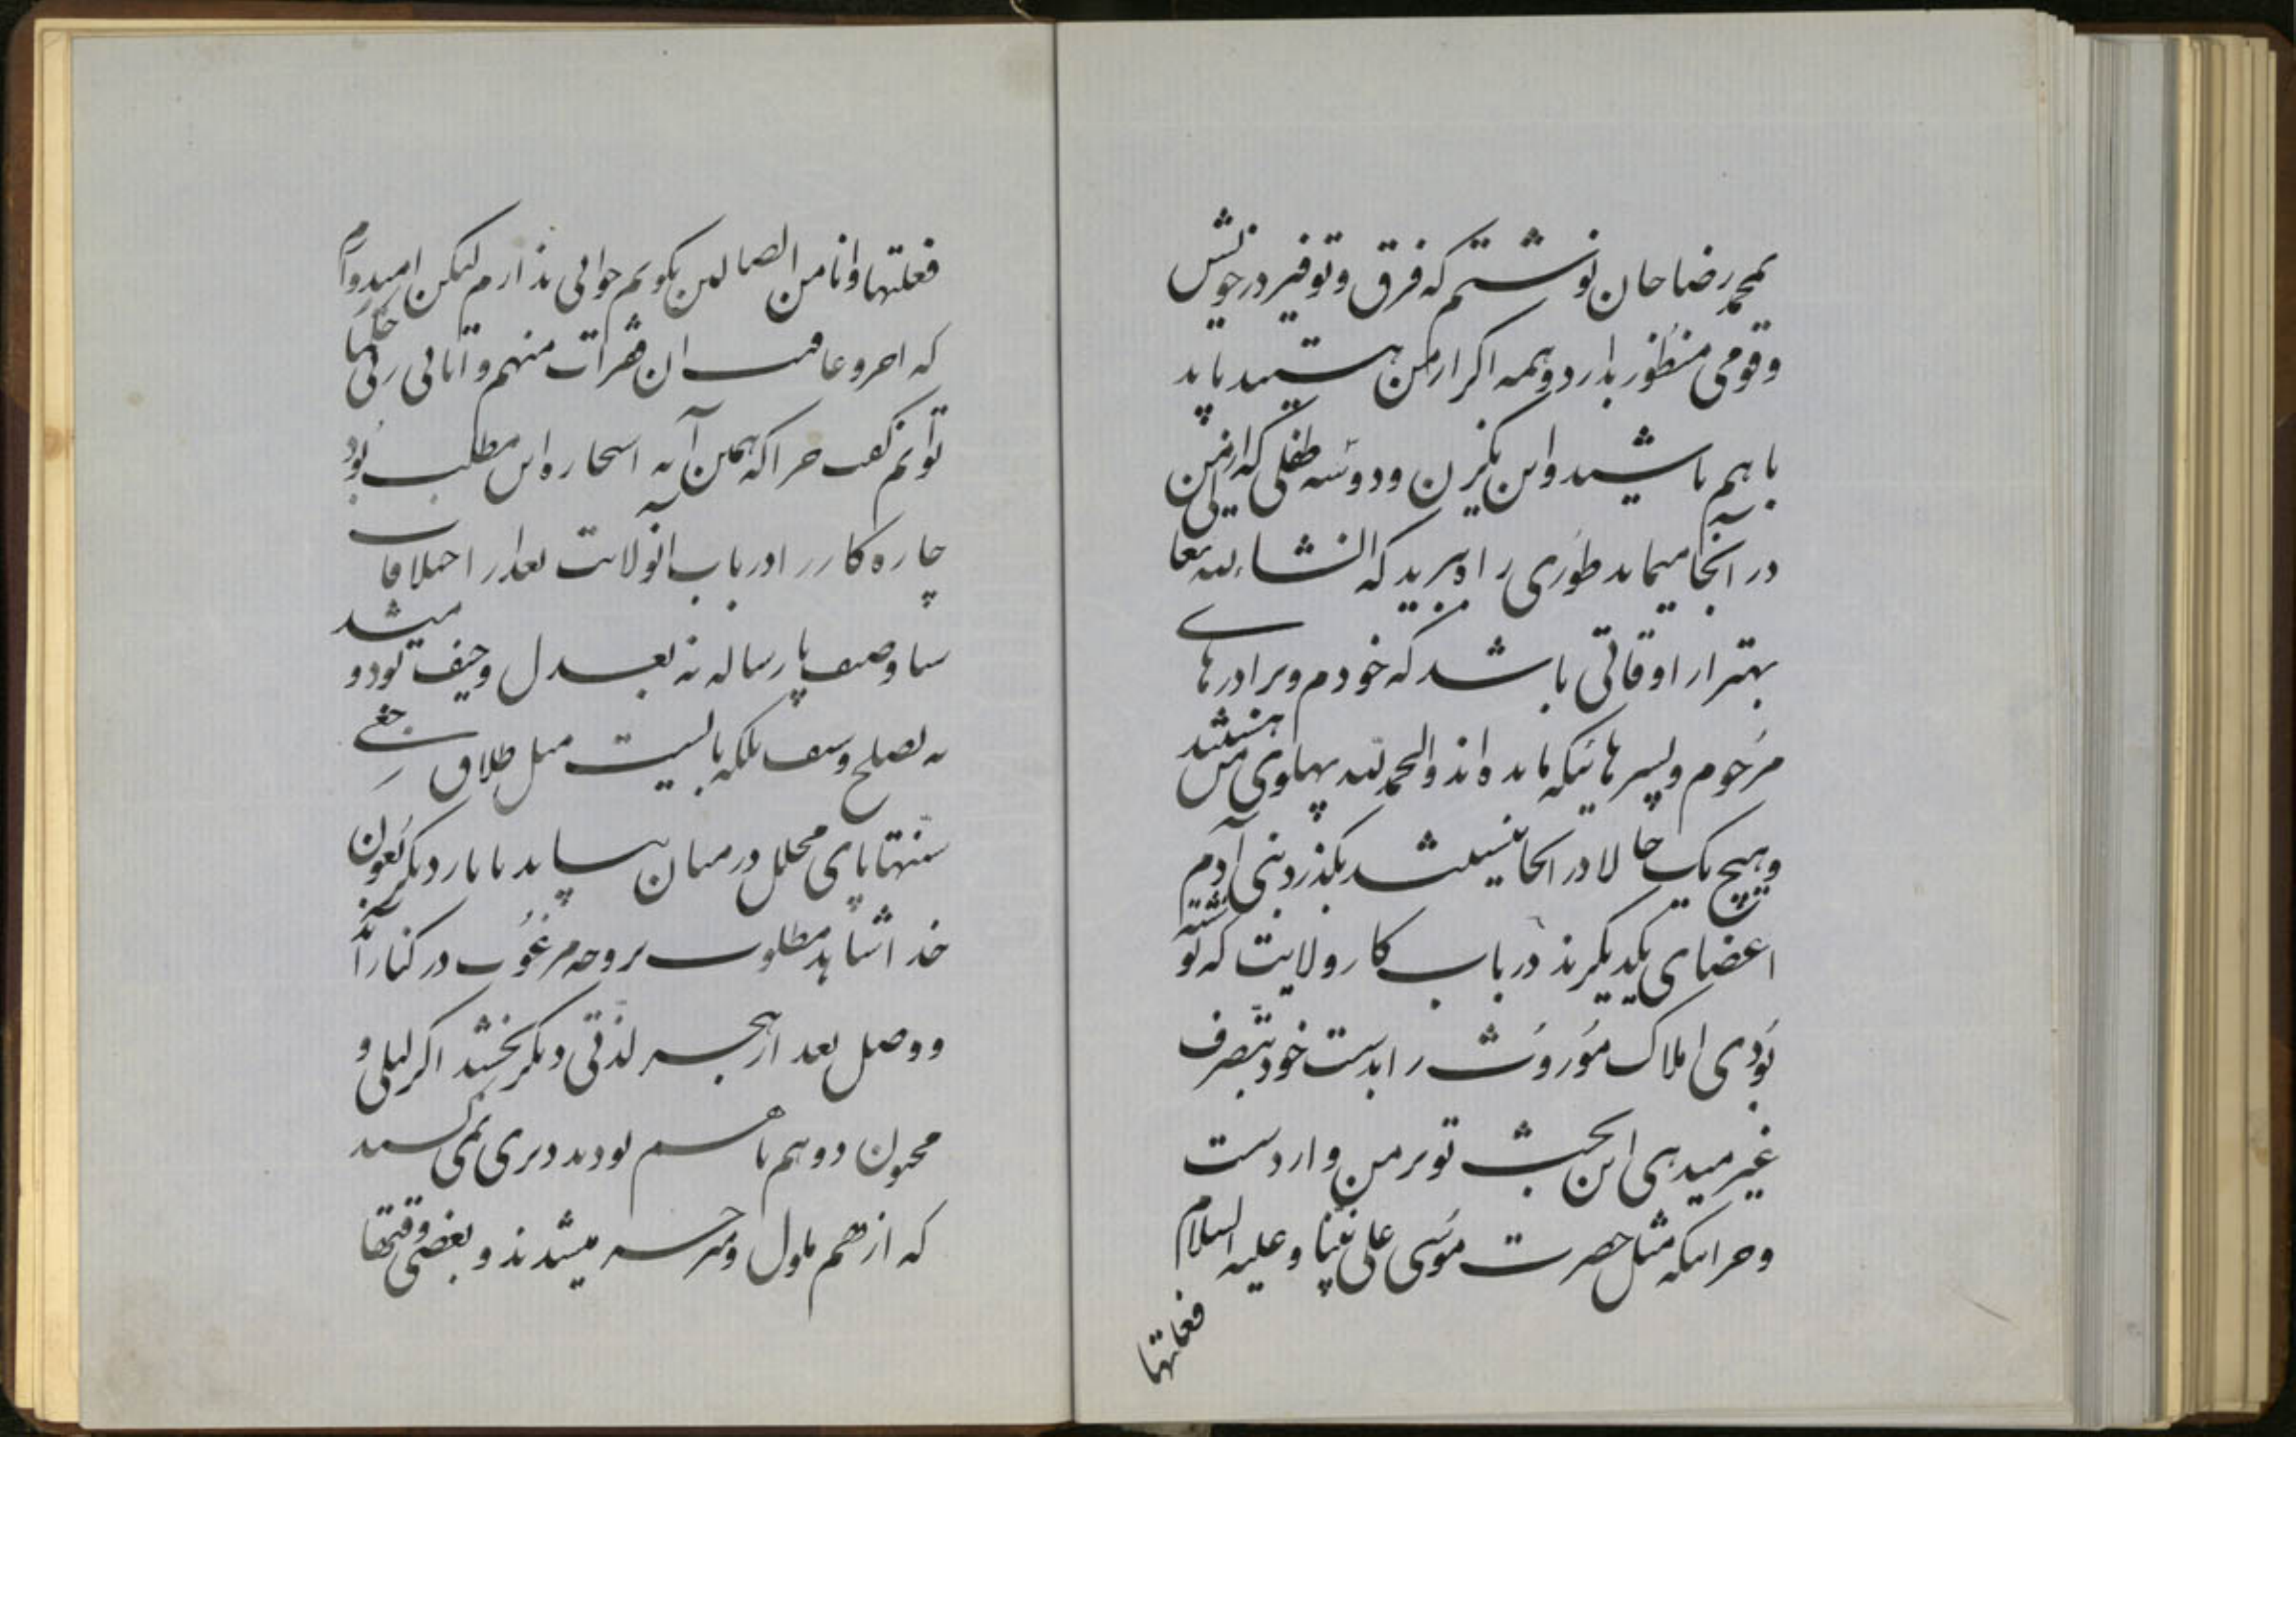 بمحمد رضا خان نوشتم که فرق و توفیر در خویش
و قومی منظور ندارد و همه اگر از من هستید باید
با هم باشید و این یک زن و دو سه طفلی که از من
در آنجا میماند طوری راه ببرید که انشاء الله تعالی
بهتر از اوقاتی باشد که خودم و برادرهای
مرحوم و پسرهائیکه مانده اند و الحمد لله پهلوی من هستند
و هیچ یک حالا در آنجا نیستند بگذرد بنی آدم
اعضای یکدیگرند در باب کار ولایت که نوشته
بودی املاک موروث را بدست خود بتصرف
غیر میدهی این بحث تو بر من وارد است
و جز اینکه مثل حضرت موسی علی نبینا و علیه السلام
فعلتها
فعلتها و انا من الضالین بگویم جوابی ندارم لیکن امیدوارم
که آخر و عاقبت آن ففررت منهم و آتانی ربی حکما
توانم گفت چرا که همین آیه استخاره این مطلب بود
چاره کار را در باب آنولایت بعد از اختلافات
بعدل و حیف بود و میشد
نه بصلح و سیف بلکه بایست مثل طلاق رجعی
سنتها پای محلل در میان بیاید تا بار دیگر بعون
خدا شاید مطلوب بر وجه مرغوب در کنار آید
و وصل بعد از هجر لذتی دیگر بخشد اگر لیلی و
مجنون دو هم با هم بودند دیری نمی کشید
که از هم ملول و منزجر میشدند و بعضی وقتها